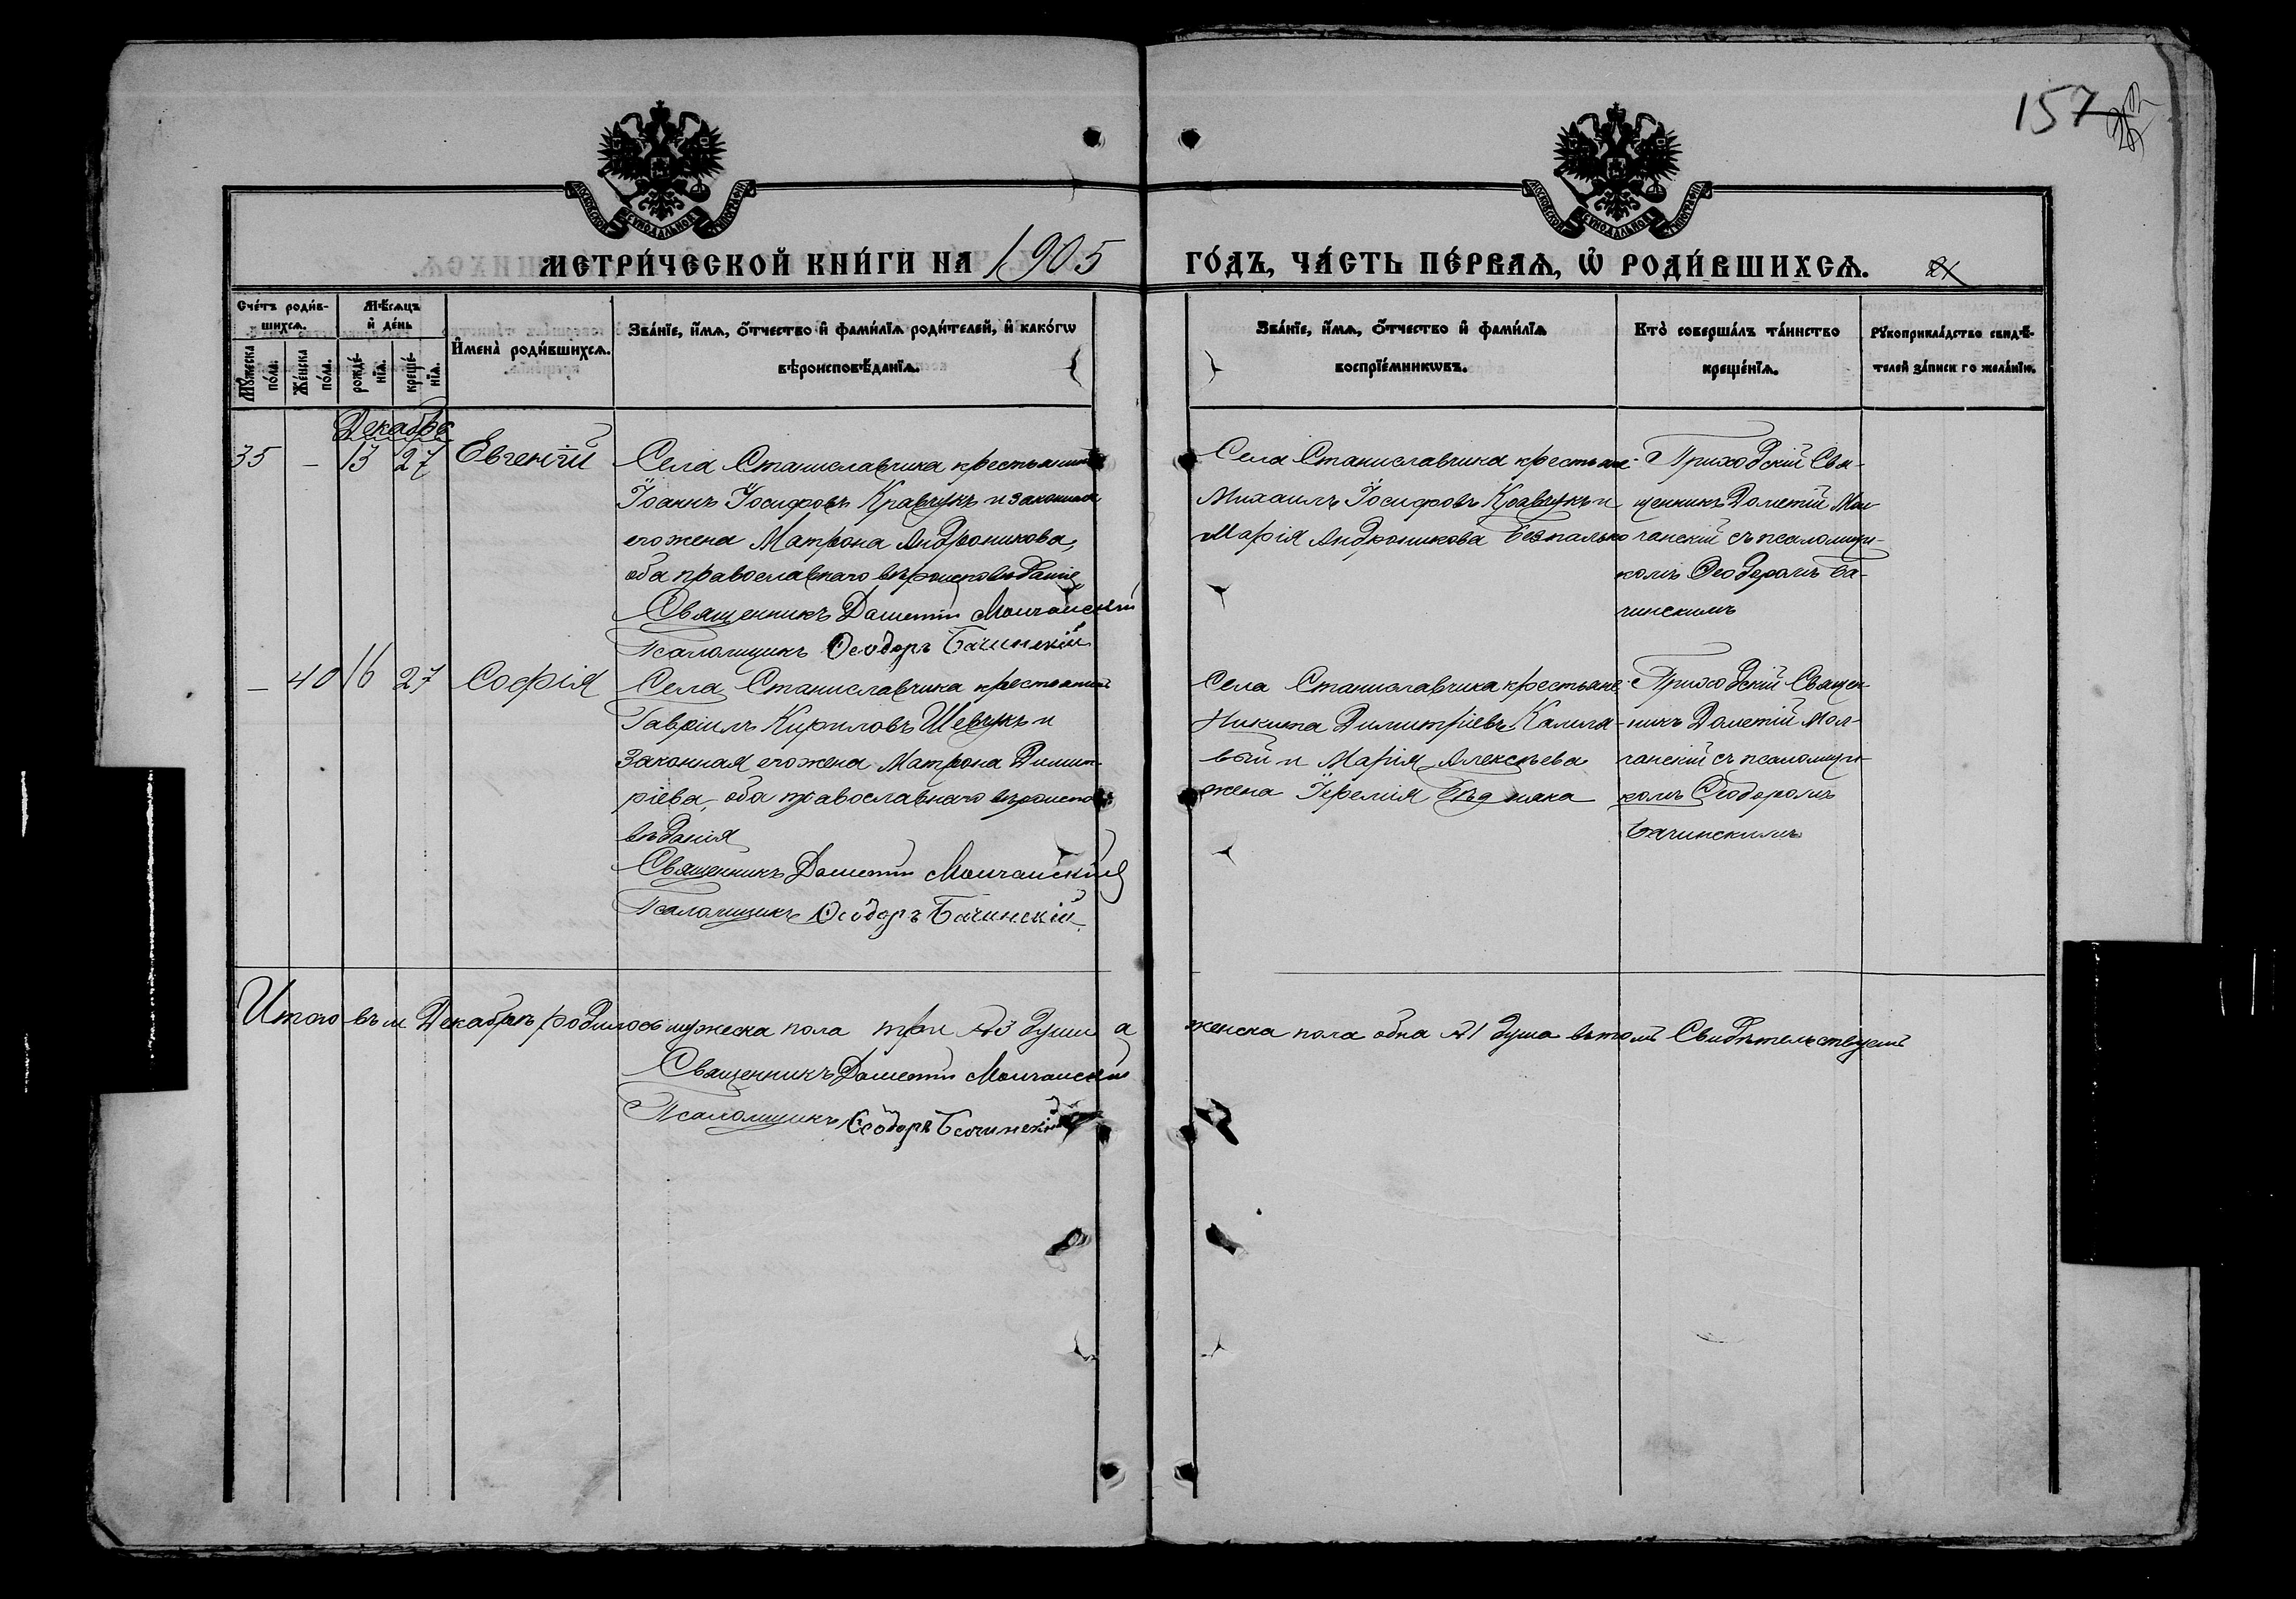 157
МОСКОВСКОЙ СѴНОДАЛЬНОЙ ТИПОГРАФІИ
МОСКОВСКОЙ СѴНОДАЛЬНОЙ ТИПОГРАФІИ
МЕТРИ́ЧЕСКОЙ КНИ́ГИ НА 1905
ГО́ДЪ, ЧА́СТЬ ПЕ́РВАѦ, Ѡ҆ РОДИ́ВШИХСѦ.
Сче́тъ роди́в-
шихсѧ.
Мꙋ́жеска по́ла.
Же́нска по́ла.
Мѣ́сѧцъ
и҆ де́нь
рожде́-
нїѧ.
креще́-
нїѧ.
И҆мена̀ роди́вшихсѧ.
Зва́нїе, и҆́мѧ, ѻ҆́тчество и҆ фами́лїѧ роди́телей, и҆ како́гѡ
вѣроисповѣ́данїѧ.
Зва́нїе, и҆́мѧ, ѻ҆́тчество и҆ фами́лїѧ
воспрїе́мникѡвъ.
Кто̀ соверша́лъ та́инство
креще́нїѧ.
Рꙋкоприкла́дство свидѣ́-
телей за́писи по жела́нїю.
Декабрь
35 — 13 27 Евгеній
Села Станиславчика крестьянинъ
Іоаннъ Іосифовъ Кравчукъ и законная
его жена Матрона Андроникова,
оба православнаго вѣроисповѣданія
Священникъ Дометій Молчанскій
Псаломщикъ Ѳеодоръ Бачинскій
Села Станиславчика крестьяне:
Михаилъ Іосифовъ Кравчукъ и
Марія Андроникова Безпалько
Приходскій Свя-
щенникъ Дометій Мол-
чанскій съ псаломщи-
комъ Ѳеодоромъ Ба-
чинскимъ
— 40 16 27 Софія
Села Станиславчика крестьянинъ
Гавріилъ Кириловъ Шевчукъ и
Законная его жена Матрона Димит-
ріева, оба православнаго вѣроиспо-
вѣданія
Священникъ Дометій Молчанскій
Псаломщикъ Ѳеодоръ Бачинскій
Села Станиславчика крестьяне:
Никита Димитріевъ
и Марія Алексѣева
жена Іереміи
Приходскій Священ-
никъ Дометій Мол-
чанскій съ псаломщи-
комъ Ѳеодоромъ
Бачинскимъ
Итого въ м. Декабрѣ родилось мужеска пола три № 3 души а
женска пола одна № 1 душа въ томъ Свидѣтельствуемъ
Священникъ Дометій Молчанскій
Псаломщикъ Ѳеодоръ Бачинскій